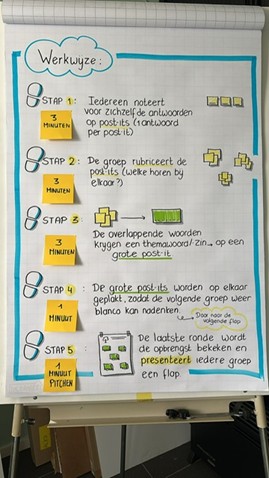 Werkwijze:
STAP 1: Iedereen noteert
voor zichzelf de antwoorden
op post-its (1 antwoord
per post it)
3
MINUTEN
STAP 2: De groep rubriceert de
post-its (welke horen bij
elkaar?)
3
MINUTEN
STAP 3
De overlappende woorden
krijgen een themawoord/-zin op een
grote post-it
3
MINUTEN
STAP 4: De grote post-its worden op elkaar
geplakt, zodat de volgende groep weer
blanco kan nadenken.
1
MINUUT
Door naar de
volgende flap
STAP 5: De laatste ronde wordt
de opbrengst bekeken en
presenteert iedere groep
een flap.
1
MINUUT
PITCHEN